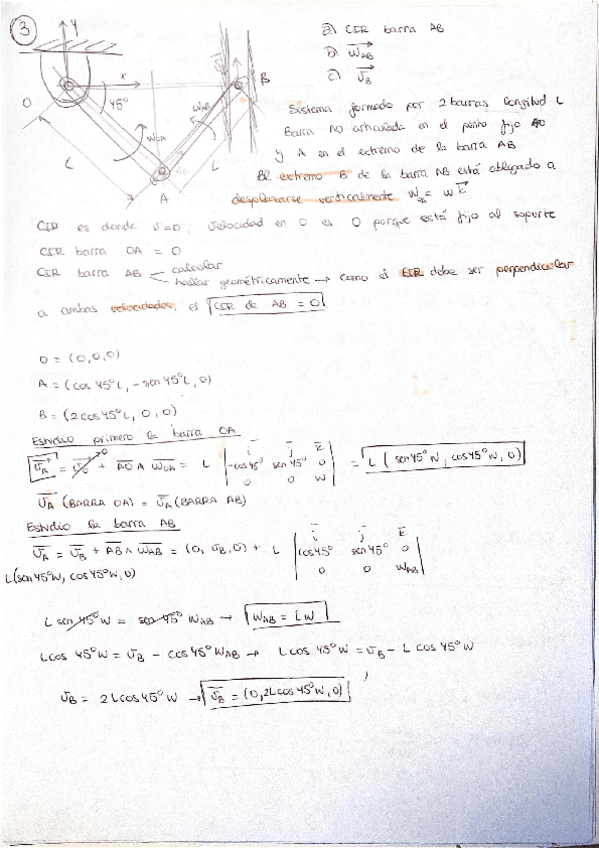 3
Y
a) CIR barra AB
b) W̅AB
c) V̅B
x
B
O
45°
WAB
WOA
L
L
A
Sistema formado por 2 barras longitud L
Barra AO articulada en el punto fijo O
y A en el extremo de la barra AB
El extremo B de la barra AB está obligado a
desplazarse verticalmente W̅OA = w k̅
CIR es donde v=0, velocidad en O es 0 porque está fijo al soporte
CIR barra OA = O
CIR barra AB calcular
hallar geométricamente → como el CIR debe ser perpendicular
a ambas velocidades, el CIR de AB = O
O = (0,0,0)
A = (cos 45°L, -sen 45°L, 0)
B = (2cos 45°L, 0, 0)
Estudio primero la barra OA
V̅A = V̅O + A̅O̅ ∧ W̅OA = L | i̅ j̅ k̅ | = L (sen 45°W, cos 45°W, 0)
-cos 45° sen 45° 0
0 0 W
V̅A (BARRA OA) = V̅A (BARRA AB)
Estudio la barra AB
V̅A = V̅B + A̅B̅ ∧ W̅AB = (0, VB, 0) + L | i̅ j̅ k̅ |
cos 45° sen 45° 0
0 0 WAB
L(sen 45°W, cos 45°W, 0)
L sen 45° W = sen 45° WAB → WAB = LW
L cos 45° W = VB - cos 45° WAB → L cos 45° W = VB - L cos 45° W
VB = 2L cos 45° W → V̅B = (0, 2L cos 45° W, 0)